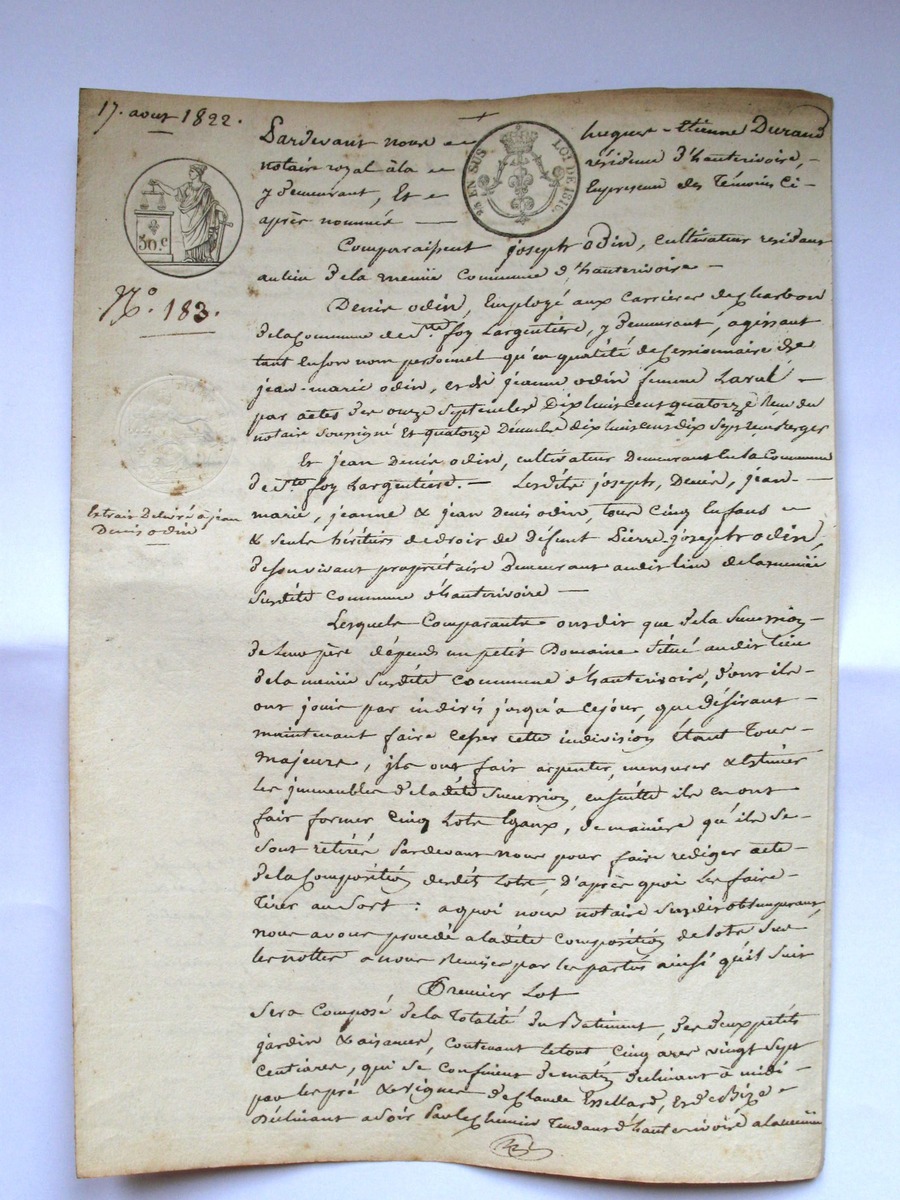 17. aout 1822.
Pardevant nous hugues-Etienne Durand
notaire royal à la résidence d'hauterivoire,
y demeurant, Et En presence des Témoins Ci-
après nommés
EN SUS LOI DE 1816.
50 c
Comparaissent joseph odin, cultivateur résidant
au lieu de la meniie Commune d'hauterivoire
N.o 183.
Denis odin, Employé aux carrières de charbon
de la Commune de Ste. foy Largentière, y demeurant, agissant
tant En son nom personnel qu'en qualité de Cessionnaire de
jean-marie odin, et de jeanne odin femme Laval
par actes des onze Septembre Dix huit cent quatorze Reçu du
notaire Soussigné Et quatorze Décembre dix huit cent dix Sept
Et jean Denis odin, cultivateur Demeurant En la Commune
de Ste. foy Largentière. Lesdits joseph, Denis, jean-
marie, jeanne & jean Denis odin, tous Cinq Enfans
& Seuls héritiers de droit de défunt Pierre-joseph odin,
de Son vivant propriétaire Demeurant audit lieu de la meniie
Susdite commune d'hauterivoire
Extrait Délivré à jean
Denis odin
Lesquels Comparants ont dit que de la Succession
de Leur père dépend un petit Domaine Situé audit lieu
de la meniie Susdite commune d'hauterivoire, dont ils
ont joui par indivis jusqu'à ce jour, que désirant
maintenant faire cesser cette indivision Etant Tous
majeurs, ils ont fait arpenter, mensurer & Estimer
Les immeubles de ladite Succession, ensuitte ils en ont
fait former Cinq Lots Egaux, de manière qu'ils Se
Sont retirés Pardevant nous pour faire rediger acte
de la Composition desdits Lots, D'après quoi Les faire
Tirer au Sort : a quoi nous notaire Susdit obtemperant,
nous avons procédé a ladite Composition de lots Sur
les nottes a nous Remises par les parties ainsi qu'il Suit
Premier Lot
Sera Composé de la Totalité du Batiment, des deux petits
jardin & aisances, contenant le tout Cinq ares vingt Sept
Centiares, qui Se Confinent de matin déclinant à midi
par les pré & vignes de Claude Essellard, Et de Bize
Déclinant a Soir Par le Chemin Tendant d'hauterivoire a la meniie